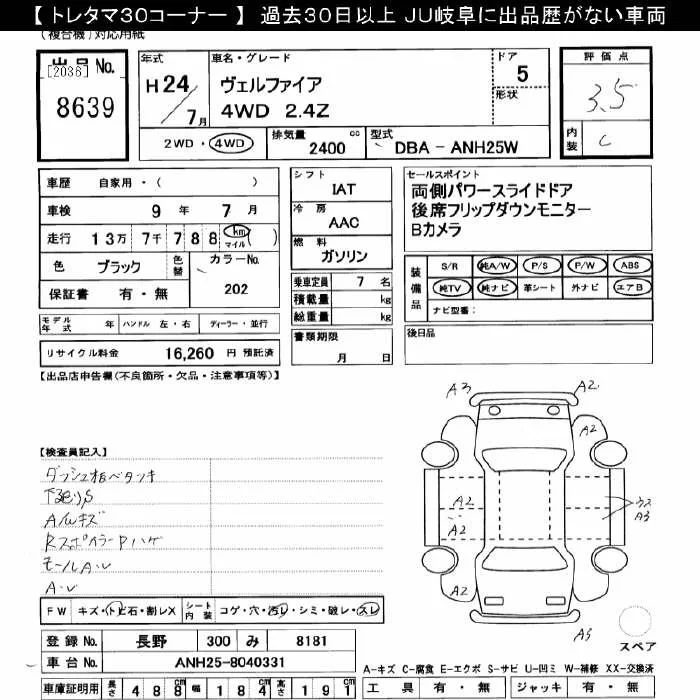 【 トレタマ30コーナー 】 過去30日以上 JU岐阜に出品歴がない車両
(複合機)対応用紙
出品No.
[2036]
8639
年式
H 24 / 7月
車名・グレード
ヴェルファイア
4WD 2.4Z
ドア
5
形状
評価点
3.5
内装
C
2WD・4WD
排気量
2400 cc
型式
DBA - ANH25W
車歴 自家用・( )
車検 9 年 7 月
走行 13万 7千 7 8 8 km マイル ( )
色 ブラック 色替 カラーNo.
202
保証書 有・無
シフト
IAT
冷房
AAC
燃料
ガソリン
乗車定員 7 名
積載量 kg
総重量 kg
書類期限
月 日
セールスポイント
両側パワースライドドア
後席フリップダウンモニター
Bカメラ
装備品
S/R 純A/W P/S P/W ABS
純TV 純ナビ 革シート 外ナビ エアB
ナビ型番:
後日品
モデル年式 年 ハンドル 左・右 ディーラー・並行
リサイクル料金 16,260 円 預託済
【出品店申告欄(不良箇所・欠品・注意事項等)】
【検査員記入】
ダッシュ板ベタツキ
下廻りS
A/Wキズ
Rスポイラー Pハゲ
モールA・U
A・U
A3
A2
A2
A2
A2
ウス
A3
A2
A3
FW キズ・トビ石・割レX シート内装 コゲ・穴・汚レ・シミ・破レ・スレ
登録No. 長野 300 み 8181
車台No. ANH25-8040331
車庫証明用 長さ 488cm 幅 184cm 高さ 191cm
スペア
A-キズ C-腐食 E-エクボ S-サビ U-凹ミ W-補修 XX-交換済
工具 有・無 ジャッキ 有・無